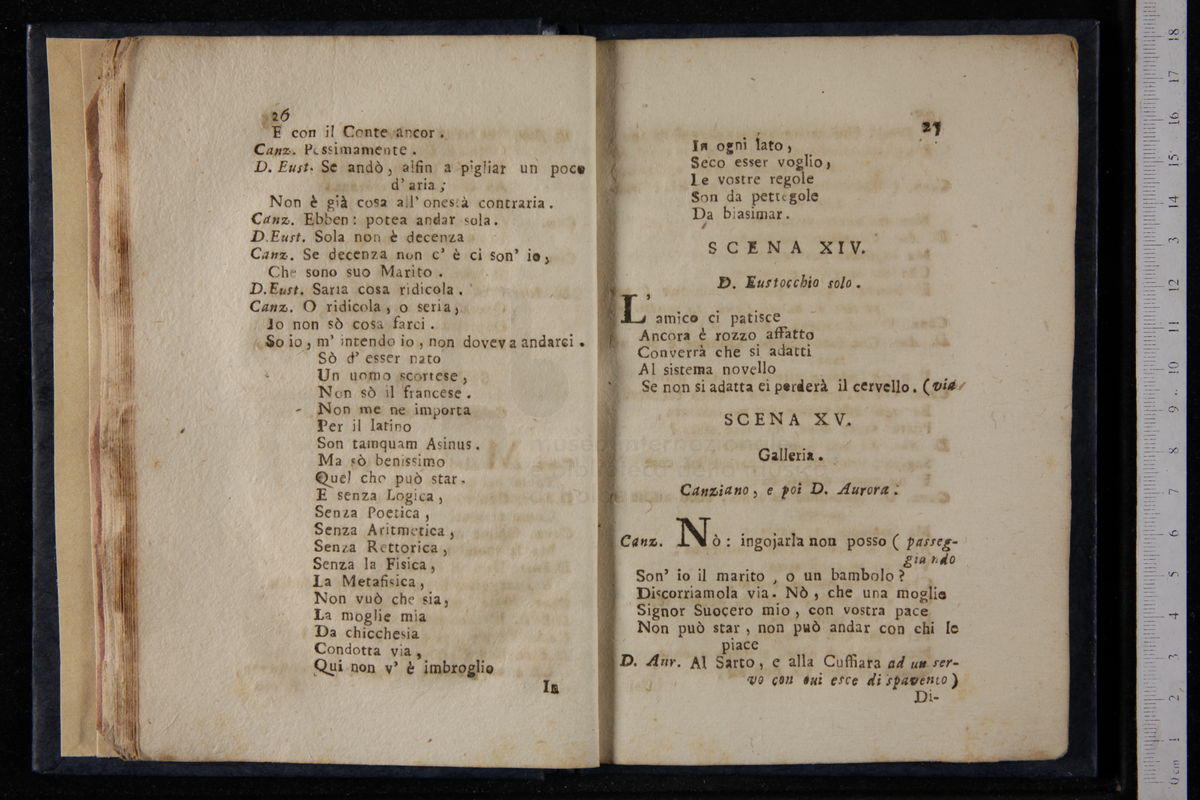 26
E con il Conte ancor.
Canz. Pessimamente.
D. Eust. Se andò, alfin a pigliar un poco
d'aria;
Non è già cosa all'onestà contraria.
Canz. Ebben: potea andar sola.
D.Eust. Sola non è decenza
Canz. Se decenza non c'è ci son' io,
Che sono suo Marito.
D.Eust. Saria cosa ridicola.
Canz. O ridicola, o seria,
Io non sò cosa farci.
So io, m'intendo io, non doveva andarci.
Sò d'esser nato
Un uomo scortese,
Non sò il francese.
Non me ne importa
Per il latino
Son tamquam Asinus.
Ma sò benissimo
Quel che può star.
E senza Logica,
Senza Poetica,
Senza Aritmetica,
Senza Rettorica,
Senza la Fisica,
La Metafisica,
Non vuò che sia,
La moglie mia
Da chicchesia
Condotta via,
Qui non v'è imbroglio
In
27
In ogni lato,
Seco esser voglio,
Le vostre regole
Son da pettegole
Da biasimar.
SCENA XIV.
D. Eustocchio solo.
L'amico ci patisce
Ancora è rozzo affatto
Converrà che si adatti
Al sistema novello
Se non si adatta ei perderà il cervello. (via
SCENA XV.
Galleria.
Canziano, e poi D. Aurora.
Canz. Nò: ingojarla non posso (passeg-
giando
Son' io il marito, o un bambolo?
Discorriamola via. Nò, che una moglie
Signor Suocero mio, con vostra pace
Non può star, non può andar con chi le
piace
D. Aur. Al Sarto, e alla Cuffiara ad un ser-
vo con cui esce di spavento)
Di-
museo internazionale
0 cm 1 2 3 4 5 6 7 8 9 10 11 12 13 14 15 16 17 18